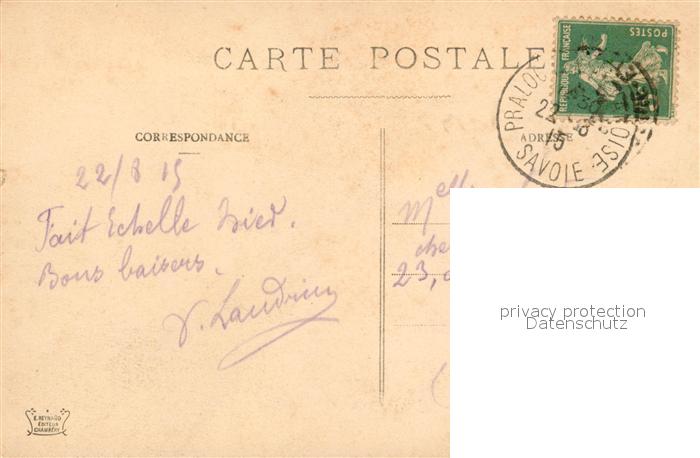 CARTE POSTALE
POSTES
REPUBLIQUE FRANÇAISE
22 - 8
15
SAVOIE
CORRESPONDANCE
ADRESSE
22/8 15
Fait Echelle hier.
Bons baisers.
Melle
23,
privacy protection
Datenschutz
E. REYNAUD
EDITEUR
CHAMBÉRY